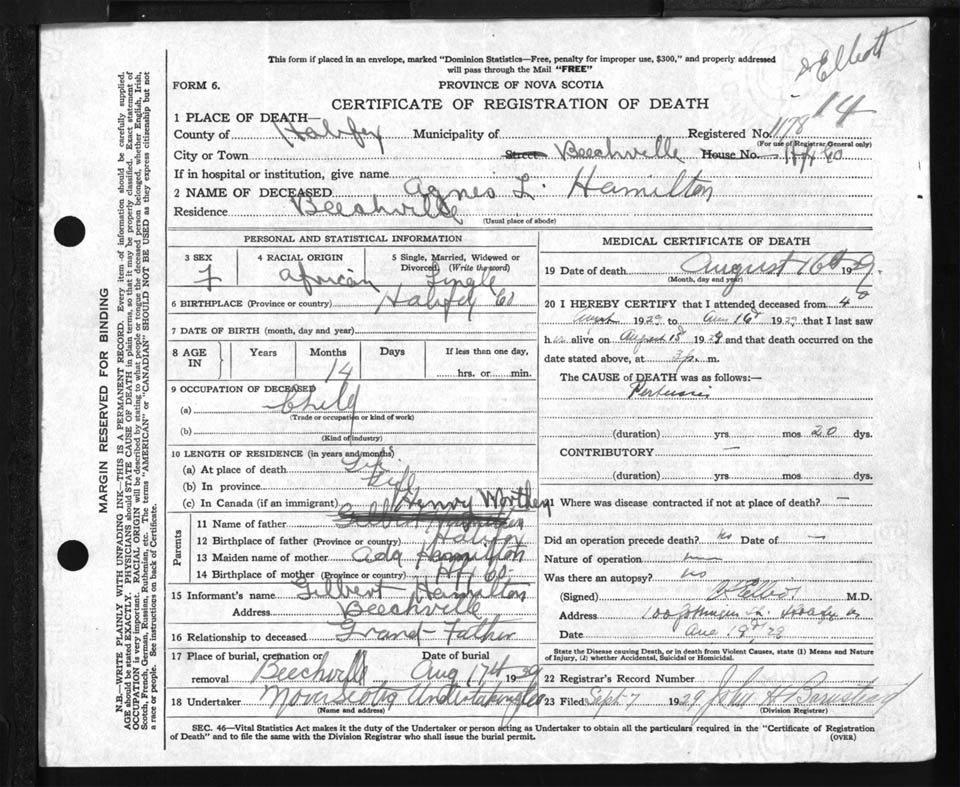 Elliott
14
This form if placed in an envelope, marked "Dominion Statistics—Free, penalty for improper use, $300," and properly addressed
will pass through the Mail "FREE"
FORM 6.
PROVINCE OF NOVA SCOTIA
CERTIFICATE OF REGISTRATION OF DEATH
1 PLACE OF DEATH—
County of Halifax Municipality of Registered No. 1178
(For use of Registrar General only)
City or Town Street Beechville House No. Hfx Co
If in hospital or institution, give name
2 NAME OF DECEASED Agnes L. Hamilton
Residence Beechville
(Usual place of abode)
PERSONAL AND STATISTICAL INFORMATION
3 SEX 4 RACIAL ORIGIN 5 Single, Married, Widowed or
Divorced (Write the word)
F African Single
6 BIRTHPLACE (Province or country) Halifax Co
7 DATE OF BIRTH (month, day and year)
8 AGE IN Years Months Days If less than one day,
14 hrs. or min.
9 OCCUPATION OF DECEASED
(a) Child
(Trade or occupation or kind of work)
(b)
(Kind of industry)
10 LENGTH OF RESIDENCE (in years and months)
(a) At place of death Life
(b) In province Life
(c) In Canada (if an immigrant) Henry Worthen
Parents
11 Name of father Gilbert Hamilton
12 Birthplace of father (Province or country) Halifax
13 Maiden name of mother Ada Hamilton
14 Birthplace of mother (Province or country) Hfx Co.
15 Informant's name Gilbert Hamilton
Address Beechville
16 Relationship to deceased Grand-Father
17 Place of burial, cremation or removal Beechville Date of burial Aug 17th 1929
18 Undertaker Nova Scotia Undertaking Co
(Name and address)
MEDICAL CERTIFICATE OF DEATH
19 Date of death August 16th 1929.
(Month, day and year)
20 I HEREBY CERTIFY that I attended deceased from 4
August 1929 to Aug 16th 1929 that I last saw
h alive on August 15th 1929 and that death occurred on the
date stated above, at 3 p. m.
The CAUSE of DEATH was as follows:—
Pertussis
(duration) yrs mos 20 dys.
CONTRIBUTORY —
(duration) yrs mos dys.
21 Where was disease contracted if not at place of death? —
Did an operation precede death? no Date of —
Nature of operation —
Was there an autopsy? no
(Signed) Elliott M.D.
Address
Date Aug 19th 29
State the Disease causing Death, or in death from Violent Causes, state (1) Means and Nature of Injury, (2) whether Accidental, Suicidal or Homicidal.
22 Registrar's Record Number
23 Filed Sept 7 1929 John H Barnstead
(Division Registrar)
SEC. 46—Vital Statistics Act makes it the duty of the Undertaker or person acting as Undertaker to obtain all the particulars required in the "Certificate of Registration
of Death" and to file the same with the Division Registrar who shall issue the burial permit. (OVER)
MARGIN RESERVED FOR BINDING
N.B.—WRITE PLAINLY WITH UNFADING INK—THIS IS A PERMANENT RECORD. Every item of information should be carefully supplied.
AGE should be stated EXACTLY. PHYSICIANS should STATE CAUSE OF DEATH in plain terms, so that it may be properly classified. Exact statement of
OCCUPATION is very important. RACIAL ORIGIN will be described by stating to what people or tongue the deceased person belonged, whether English, Irish,
Scotch, French, German, Russian, Ruthenian, etc. The terms "AMERICAN" or "CANADIAN" SHOULD NOT BE USED as they express citizenship but not
a race or people. See instructions on back of Certificate.